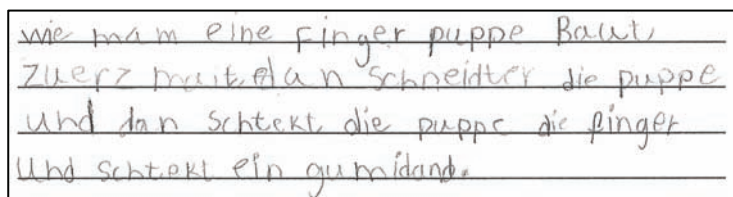 wie mam eine Finger puppe Baut,
zuerz malt, dan schneidter die puppe
und dan schtekt, die puppe die finger
und schtekt ein gumidand.